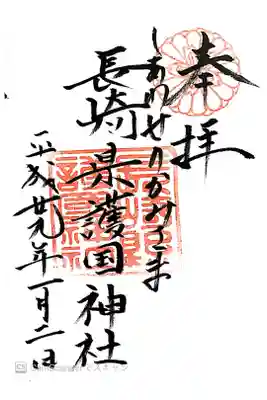 奉拝
しあわせのかみさま
長崎県護国神社
平成廿九年一月二日